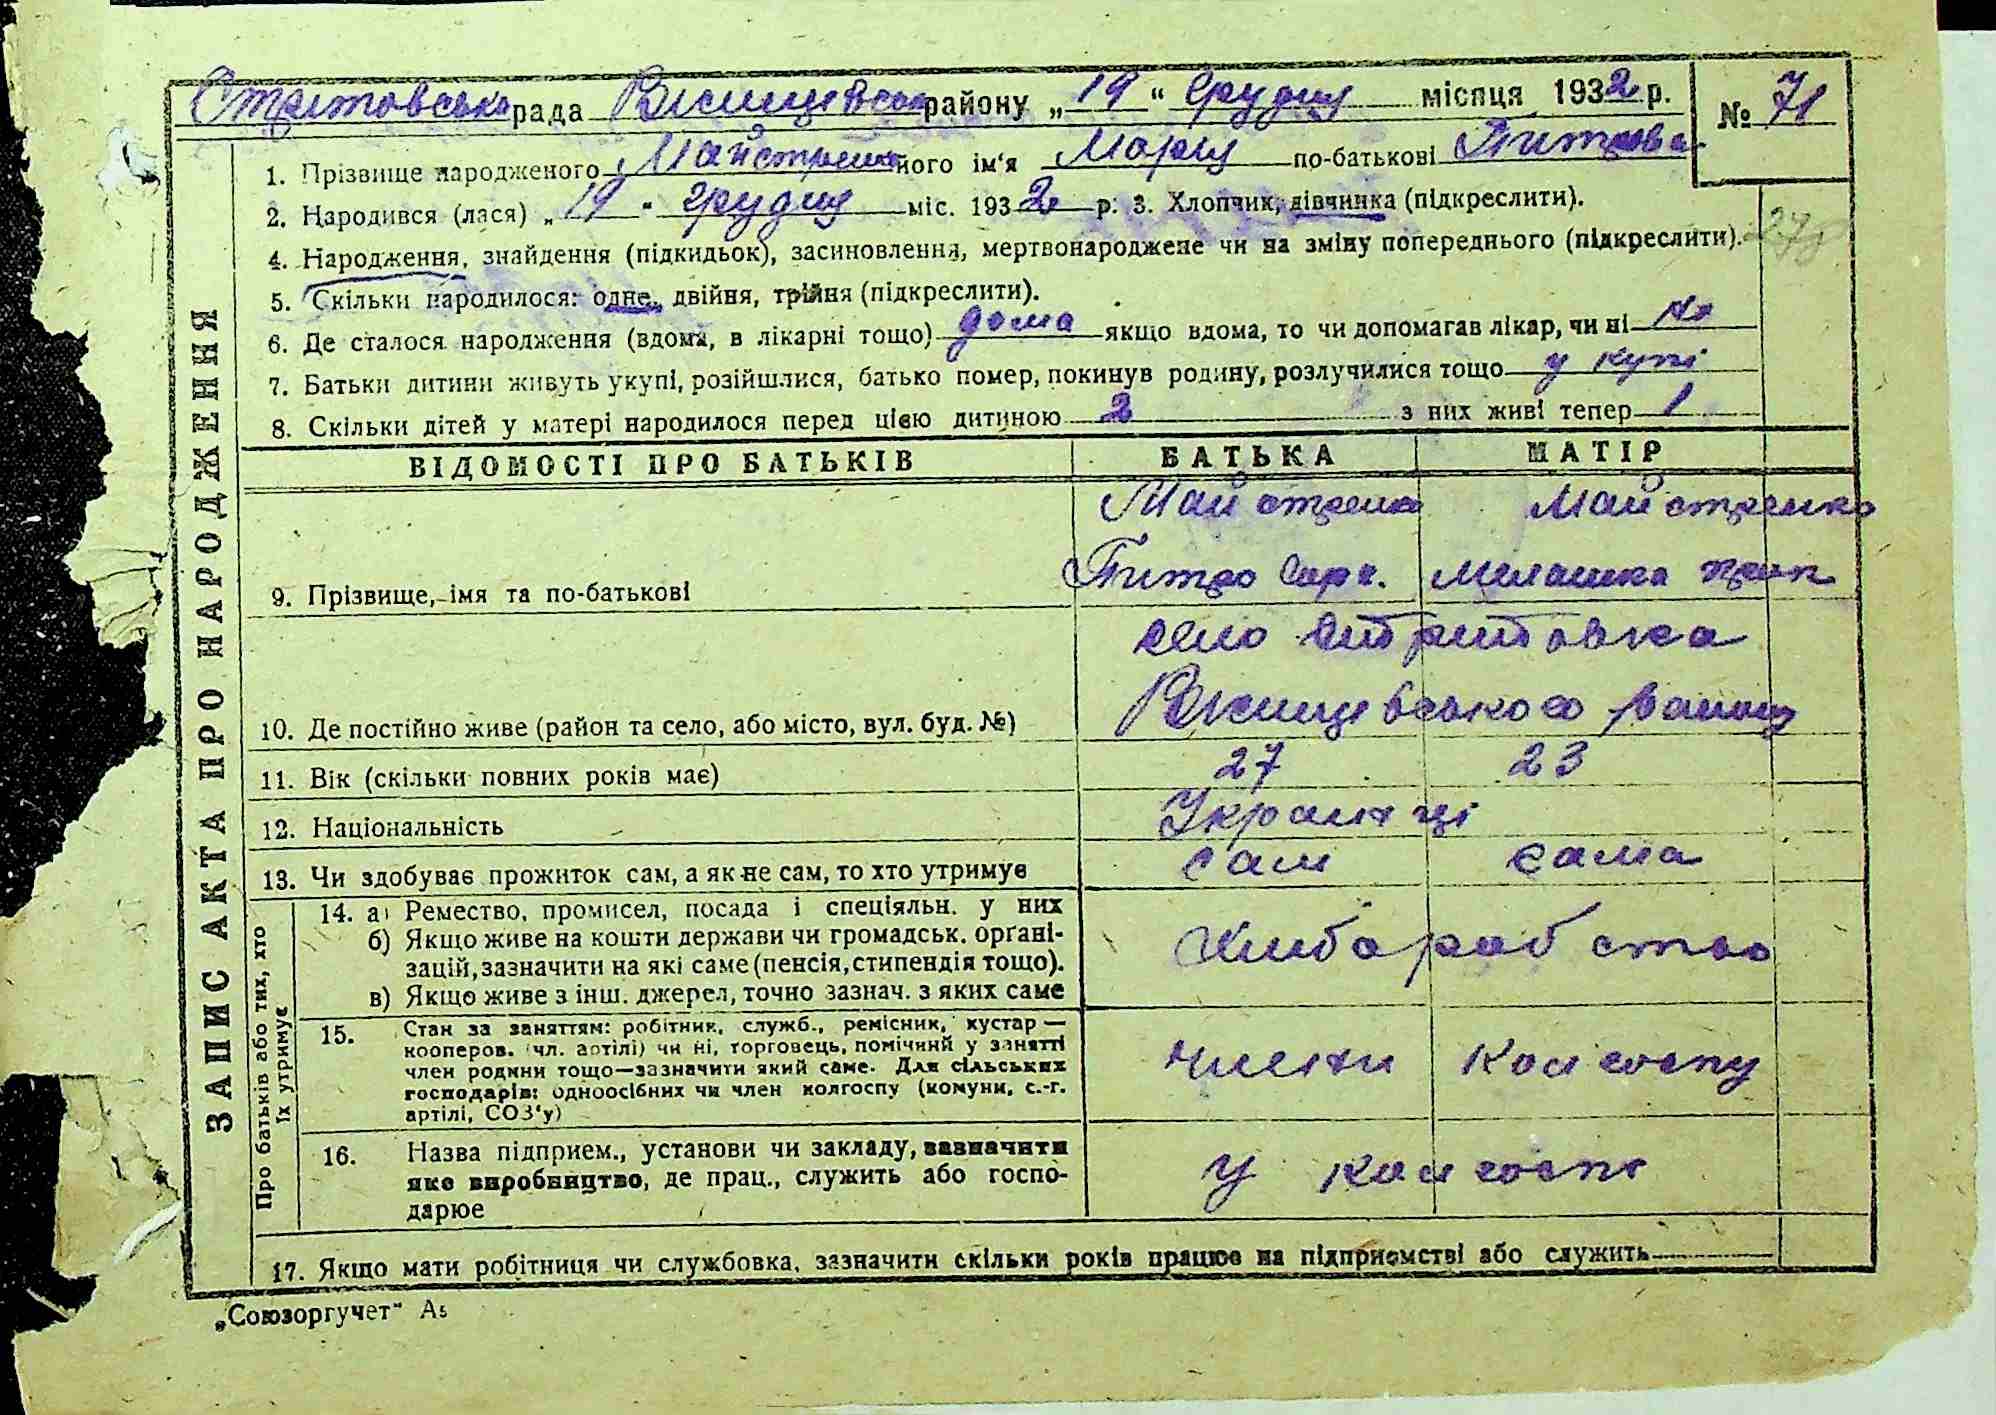 рада району „19“ Грудня місяця 1932 р. № 71
1. Прізвище народженого Майстренко його ім‘я Марія по-батькові
2. Народився (лася) „19“ грудня міс. 1932 р. 3. Хлопчик, дівчинка (підкреслити).
4. Народження, знайдення (підкидьок), засиновлення, мертвонароджене чи на зміну попереднього (підкреслити).
5. Скільки народилося: одне, двійня, трійня (підкреслити).
6. Де сталося народження (вдома, в лікарні тощо) дома якщо вдома, то чи допомагав лікар, чи ні
7. Батьки дитини живуть укупі, розійшлися, батько помер, покинув родину, розлучилися тощо у купі
8. Скільки дітей у матері народилося перед цією дитиною 2 з них живі тепер 1
ЗАПИС АКТА ПРО НАРОДЖЕННЯ
ВІДОМОСТІ ПРО БАТЬКІВ БАТЬКА МАТІР
Майстренко Майстренко
9. Прізвище, імя та по-батькові Мелашка
село
10. Де постійно живе (район та село, або місто, вул. буд. №) району
11. Вік (скільки повних років має) 27 23
12. Національність Українці
13. Чи здобуває прожиток сам, а як не сам, то хто утримує сам сама
Про батьків або тих, хто
їх утримує
14. а) Ремество, промисел, посада і спеціяльн. у них
б) Якщо живе на кошти держави чи громадськ. орґані-
зацій, зазначити на які саме (пенсія, стипендія тощо).
в) Якщо живе з інш. джерел, точно зазнач. з яких саме
Хліборобство
15. Стан за заняттям: робітник, служб., ремісник, кустар —
кооперов. (чл. артілі) чи ні, торговець, помічний у занятті
член родини тощо—зазначити який саме. Для сільських
господарів: одноосібних чи член колгоспу (комуни, с.-г.
артілі, СОЗ‘у)
члени колгоспу
16. Назва підприєм., установи чи закладу, зазначити
яке виробництво, де прац., служить або госпо-
дарює
у колгоспі
17. Якщо мати робітниця чи службовка, зазначити скільки років працює на підприємстві або служить
„Союзоргучет“ А5